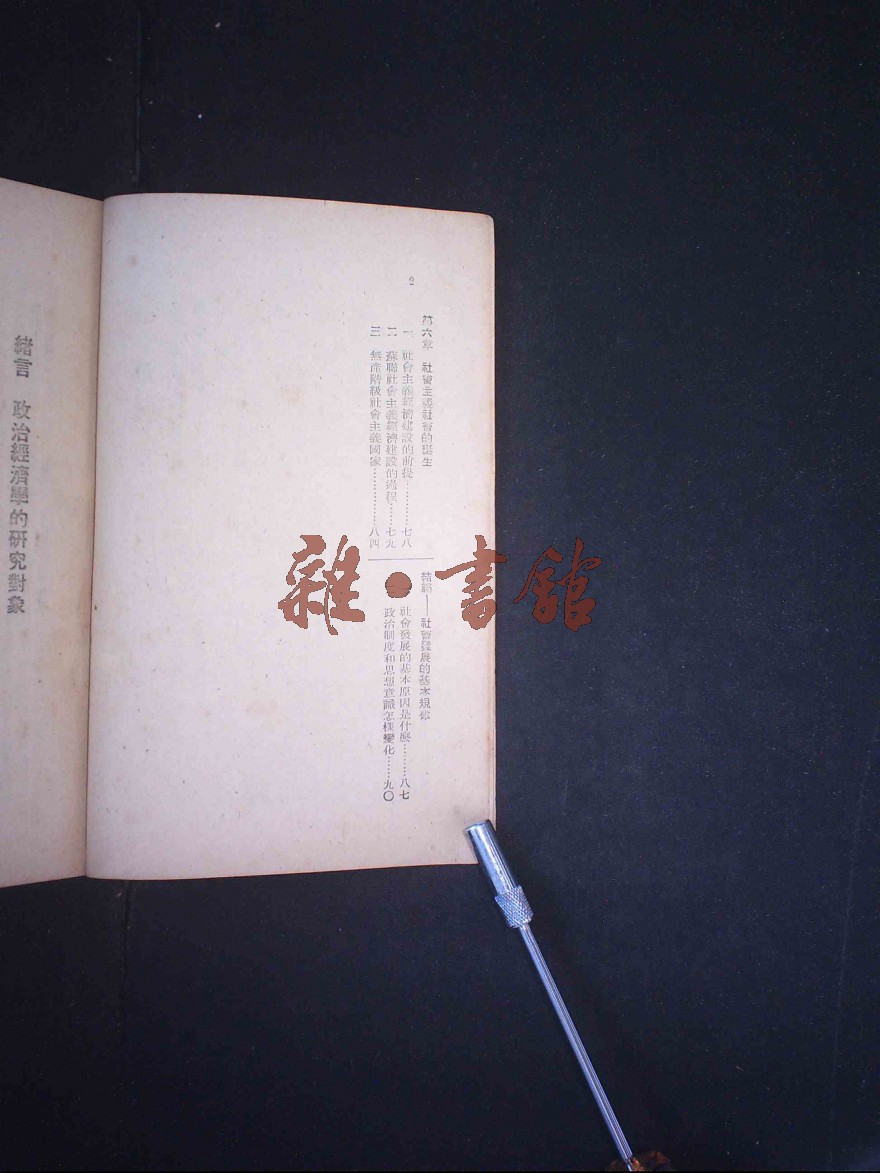 2
第六章 社會主義社會的誕生
一 社會主義經濟建設的前提…………七八
二 蘇聯社會主義經濟建設的過程……七九
三 無產階級社會主義國家……………八四
結論——社會發展的基本規律
社會發展的基本原因是什麼………八七
政治制度和思想意識怎樣變化……九〇
緒言 政治經濟學的研究對象
雜·書館